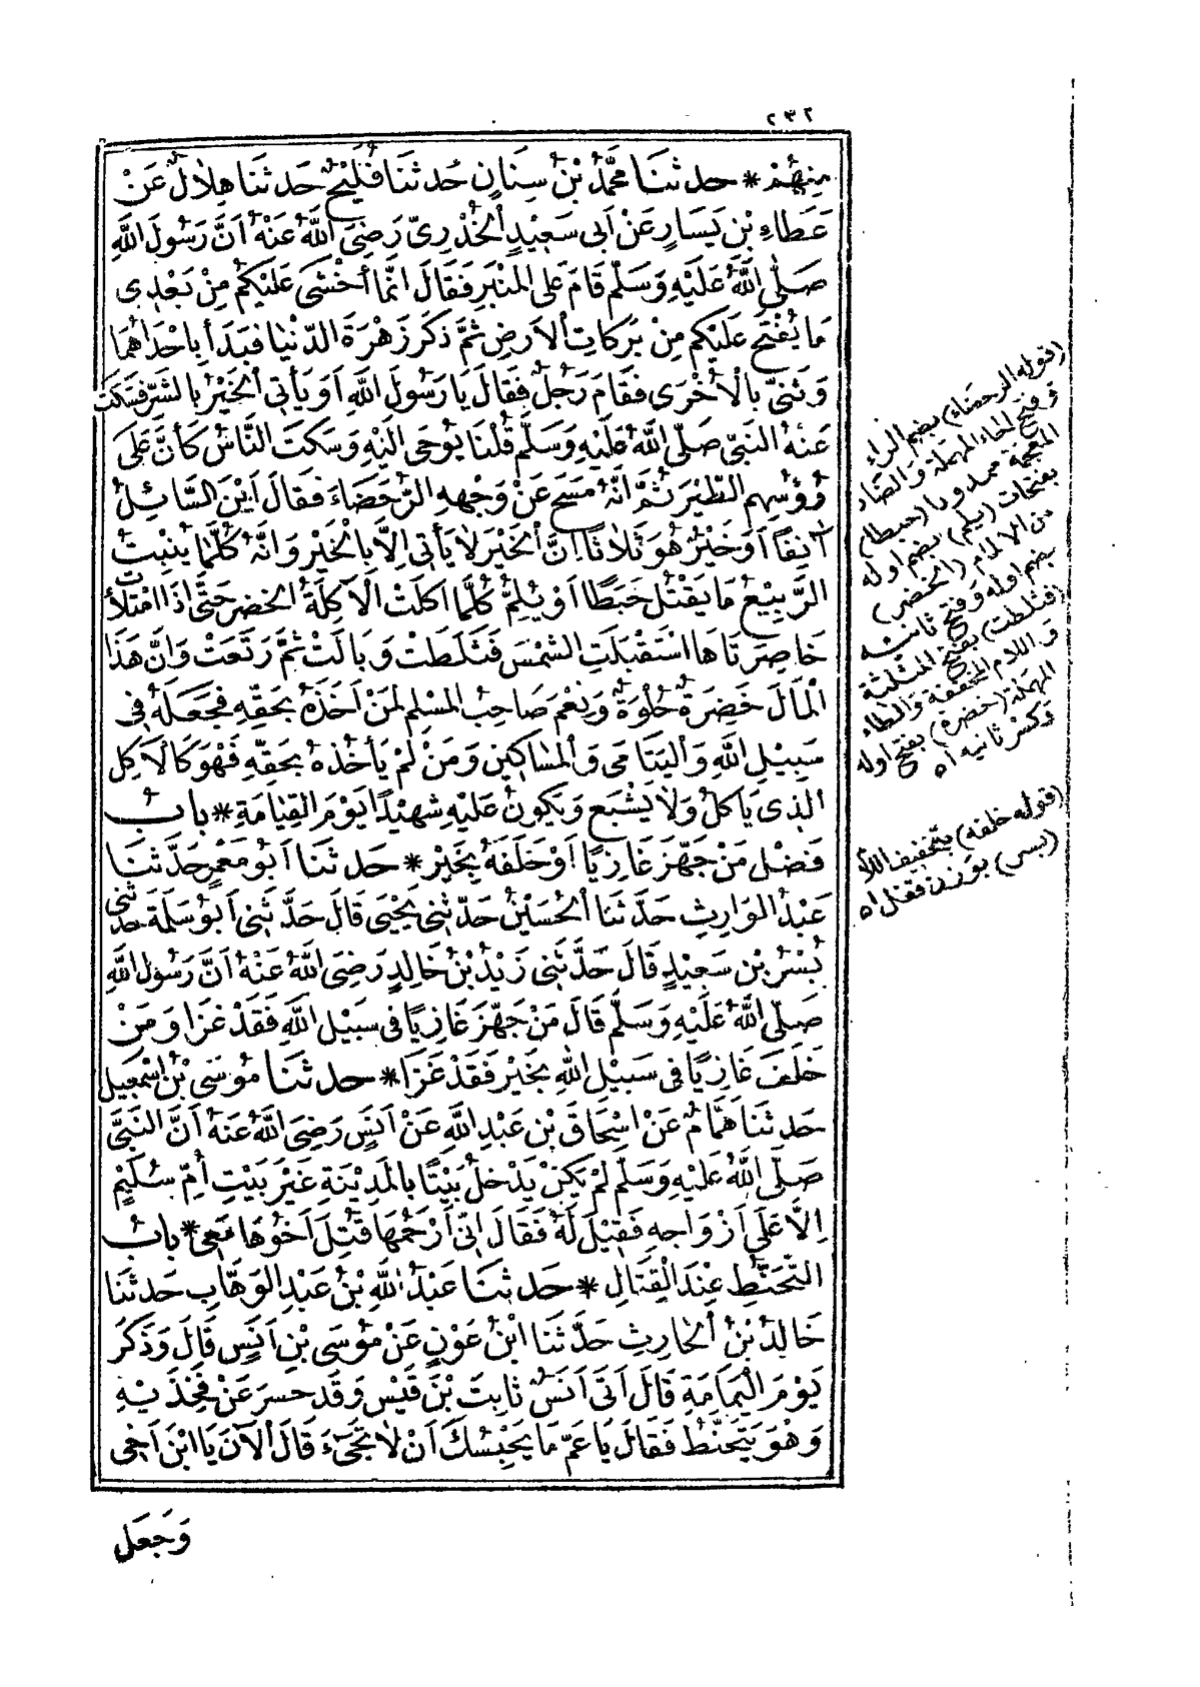 ٢٣٢
مِنْهُمْ * حدثنا مُحَمَّدُ بْنُ سِنَانٍ حَدثنَا فُلَيْحٌ حَدثنَا هِلَالٌ عَنْ
عَطَاءِ بْنِ يَسَارٍ عَنْ اَبِى سَعِيْدٍ اَلْخُدْرِىِّ رَضِىَ اللهُ عَنْهُ اَنَّ رَسُولَ اللهِ
صَلَّى اللهُ عَلَيْهِ وَسَلَّمْ قَامَ عَلَى المِنْبَرِ فَقَالَ اِنَّمَا أَخْشَى عَلَيْكُمْ مِنْ بَعْدِى
مَا يُفْتَحُ عَلَيْكم مِنْ بَرَكَاتِ اْلاَرضِ ثمَّ ذكَرَ زَهْرَةَ الدّنْيَا فبَدَأَ بِاِحْدَاهُمَا
وَثَنَّى بِالْاُخْرَى فقَامَ رَجُلٌ فقَالَ يَا رَسُولَ اللهِ اَوَ يَأتِى اَلْخَيْرُ بِالشّرِّ فَسَكَتَ
عَنْهُ النَّبِىّ صَلَّى اللهُ عَلَيْهِ وَسَلَّمَ قُلْنَا يُوْحَى اِلَيْهِ وَسَكَتَ النَّاسُ كَأنَّ عَلَى
رُؤُسِهِمِ الطَّيْرَ ثُمَّ اِنّهُ مَسَحَ عَنْ وَجْهِهِ الرُّحَضَاءَ فَقَالَ اَيْنَ السَّائِلُ
آنِفًا اَوَ خَيْرٌ هُوَ ثَلَاثًا اِنَّ اَلْخَيْرَ لَا يَأتِى اِلَّا بِالْخَيْرِ وَانَّهُ كُلَّمَا يُنْبِتُ
الرَّبِيْعُ مَا يَقْتُلُ حَبَطًا اَوْ يُلِمُّ كُلَّمَا اَكَلَتْ الْآكِلَةُ الخضِرِ حَتَّى اِذَا امْتَلأَتْ
خَاصِرَتَاهَا اسْتَقْبَلَتِ الشمْسَ فَثَلَطَتْ وَبَالَتْ ثُمَّ رَتَعَتْ وَاِنَّ هَذَا
اْلمَالَ خَضِرَةٌ حُلْوَةٌ وَنِعْمَ صَاحِبُ المُسْلِمِ لِمَنْ اَخَذَهُ بِحَقِّهِ فَجَعَلَهُ فِى
سَبِيلِ اللهِ وَاليَتَامَى وَالْمَسَاكِينِ وَمَنْ لَمْ يَأخُذْهُ بِحَقِّهِ فَهْوَ كَالْآكِلِ
الذِى يَاكلُ وَلَا يَشْبَع وَيَكُونُ عَلَيْهِ شَهِيْدًا يَوْمَ القِيَامَةِ * بابُ
فَضْلِ مَنْ جَهَّزَ غَازِيًا اَوْ خَلَفَهُ بِخَيْرٍ * حَدثنَا اَبُو مَعْمَرٍ حَدَّثنَا
عَبْدُ الوَارِثِ حَدَّثنَا اَلحُسَيْنُ حَدَّثنِى يَحْيَى قَالَ حَدَّثنِى اَبُو سَلَمَةَ حَدثنِى
بُسْرُ بْنِ سَعِيْدٍ قَالَ حَدَّثَنِى زَيْدُ بْنُ خَالِدٍ رَضِىَ اللهُ عَنْهُ اَنَّ رَسُولَ اللهِ
صَلَّى اللهُ عَلَيْهِ وَسَلَّمْ قَالَ مَنْ جَهَّزَ غَازِيًا فِى سَبِيْلِ اللهِ فَقَدْ غَزَا وَمَنْ
خَلَفَ غَازِيًا فِى سَبِيْلِ اللهِ بِخَيْرٍ فَقَدْ غَزَا * حدثنَا مُوْسَى بْنُ اِسْمعِيل
حَدثنَا هَمَّامٌ عَنْ اِسْحَاقَ بْنِ عَبْدِ اللهِ عَنْ اَنَسٍ رَضِىَ اللهُ عَنهُ اَنَّ النَّبِىَّ
صَلَّى اللهُ عَلَيْهِ وَسَلَّمْ لَمْ يَكنْ يَدْخلُ بَيْتًا بِالمَدِيْنَةِ غَيْرَ بَيْتِ اُمِّ سُلَيْمٍ
اِلَّا عَلَى اَزْوَاجِهِ فَقِيْلَ لَهُ فَقَالَ اِنّى اَرْحَمُهَا قُتِلَ اَخُوْهَا مَعِى * بابُ
التَّحَنُّطِ عِنْدَ الْقِتَالِ * حَدثنَا عَبْدُ اللهِ بْنُ عَبْدِ الوَهَّابِ حَدثنَا
خَالِدُ بْنُ اَلْحَارِثِ حَدَّثنَا ابْنُ عَوْنٍ عَنْ مُوْسَى بْنِ اَنَسٍ قَالَ وَذَكَرَ
يَوْمَ الْيَمَامَةِ قَالَ اَتَى اَنَسٌ ثَابِتَ بْنَ قَيْسٍ وَقَد حسرَ عَنْ فَخِذَيْهِ
وَهْوَ يَتَحَنَّطُ فَقَالَ يَا عَمِّ مَا يَحْبِسُكَ اَنْ لَا تَجِىْءَ قَالَ اْلآنَ يَا ابْنَ اَخِى
وَجَعَلَ
(قوله الرحضاء) بضم الراء
وفتح الحاء المهملة والضاد
المعجمة ممدودا (حبطا)
بفتحات (يلم) بضم اوله
من الالمام (الخضر)
بضم اوله وفتح ثانيه
(فثلطت) بفتح المثلثة
واللام المخففة والطاء
المهملة (خضرة) بفتح اوله
وكسر ثانيه اه
(قوله خلفه) بتخفيف اللام
(بسر) بوزن قفل اه